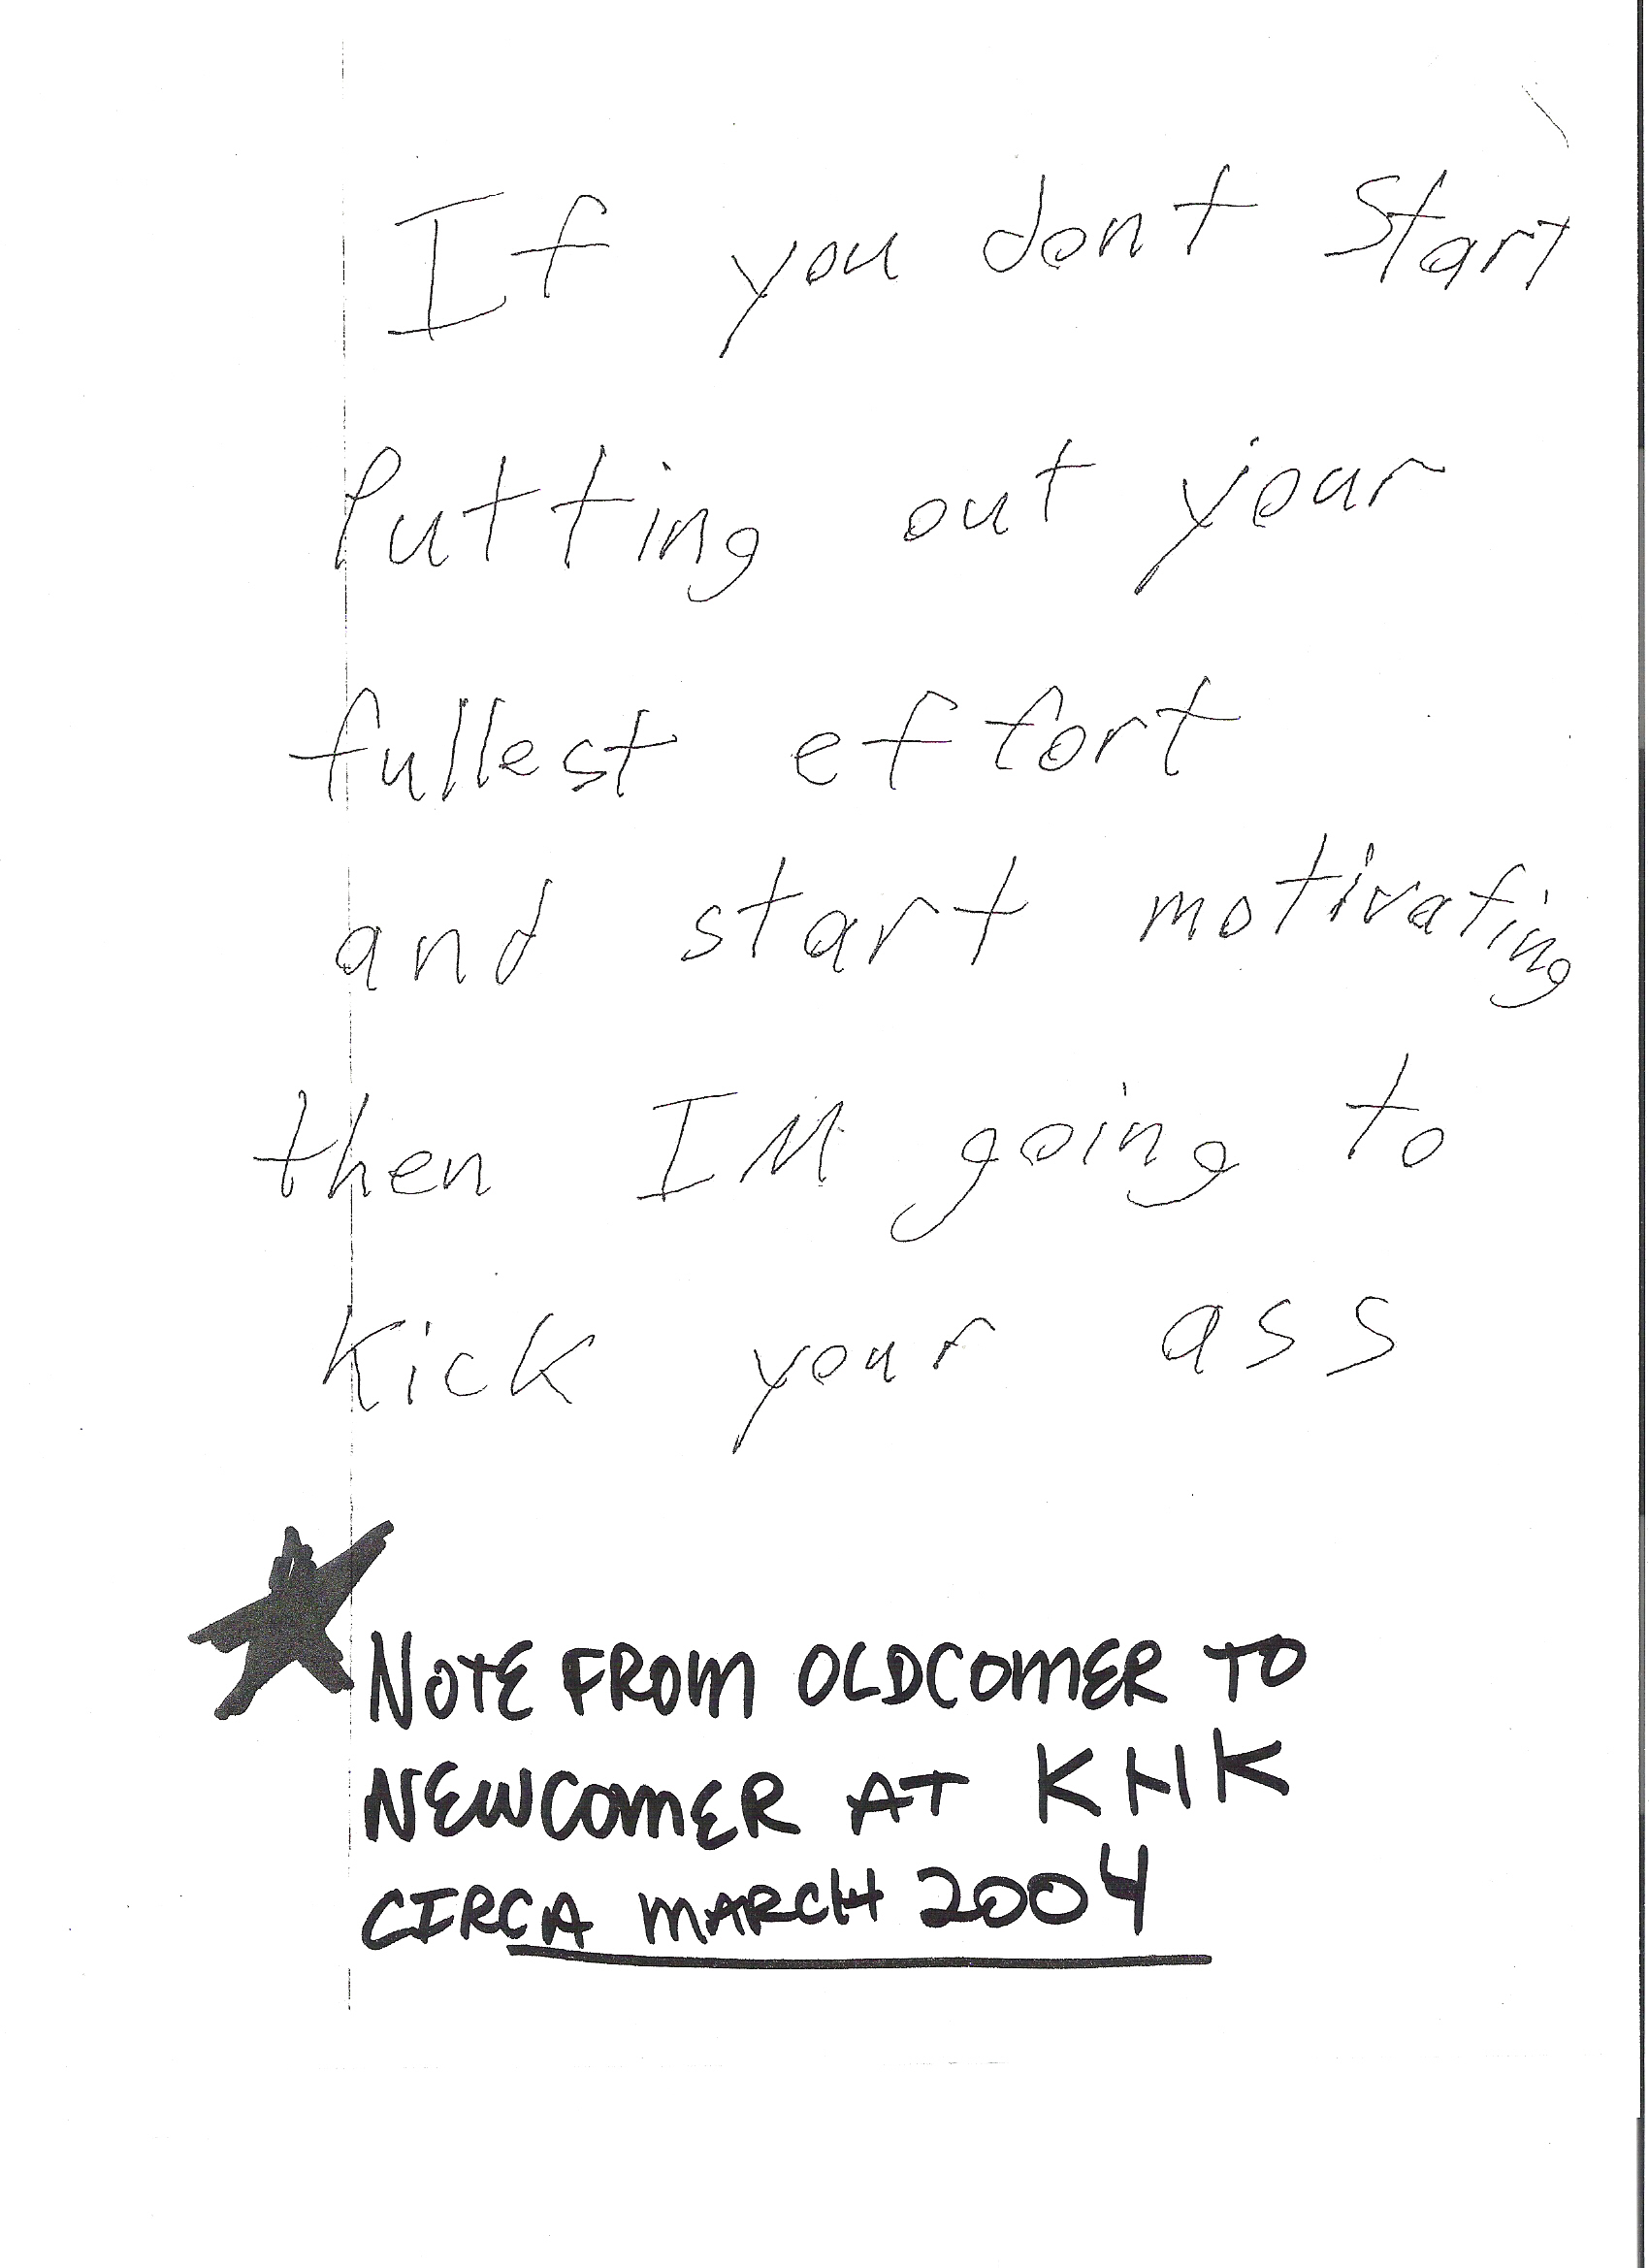 If you dont start
Putting out your
fullest effort
and start motivating
then IM going to
Kick your ass
NOTE FROM OLDCOMER TO
NEWCOMER AT KHK
CIRCA MARCH 2004